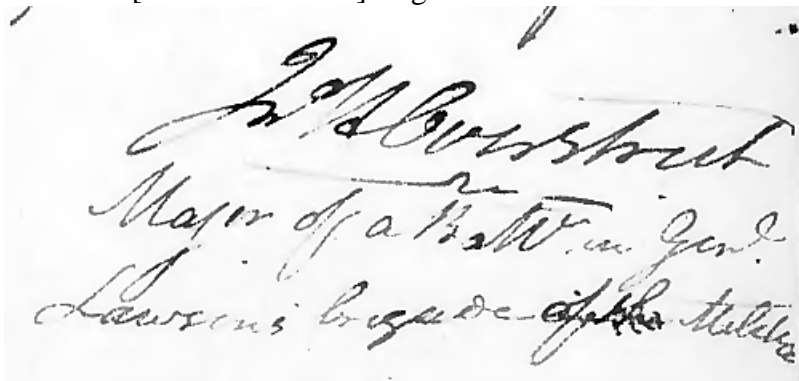 Jno H Overstreet
Major of a Battn. in Genl.
Lawson's brigade of the Militia